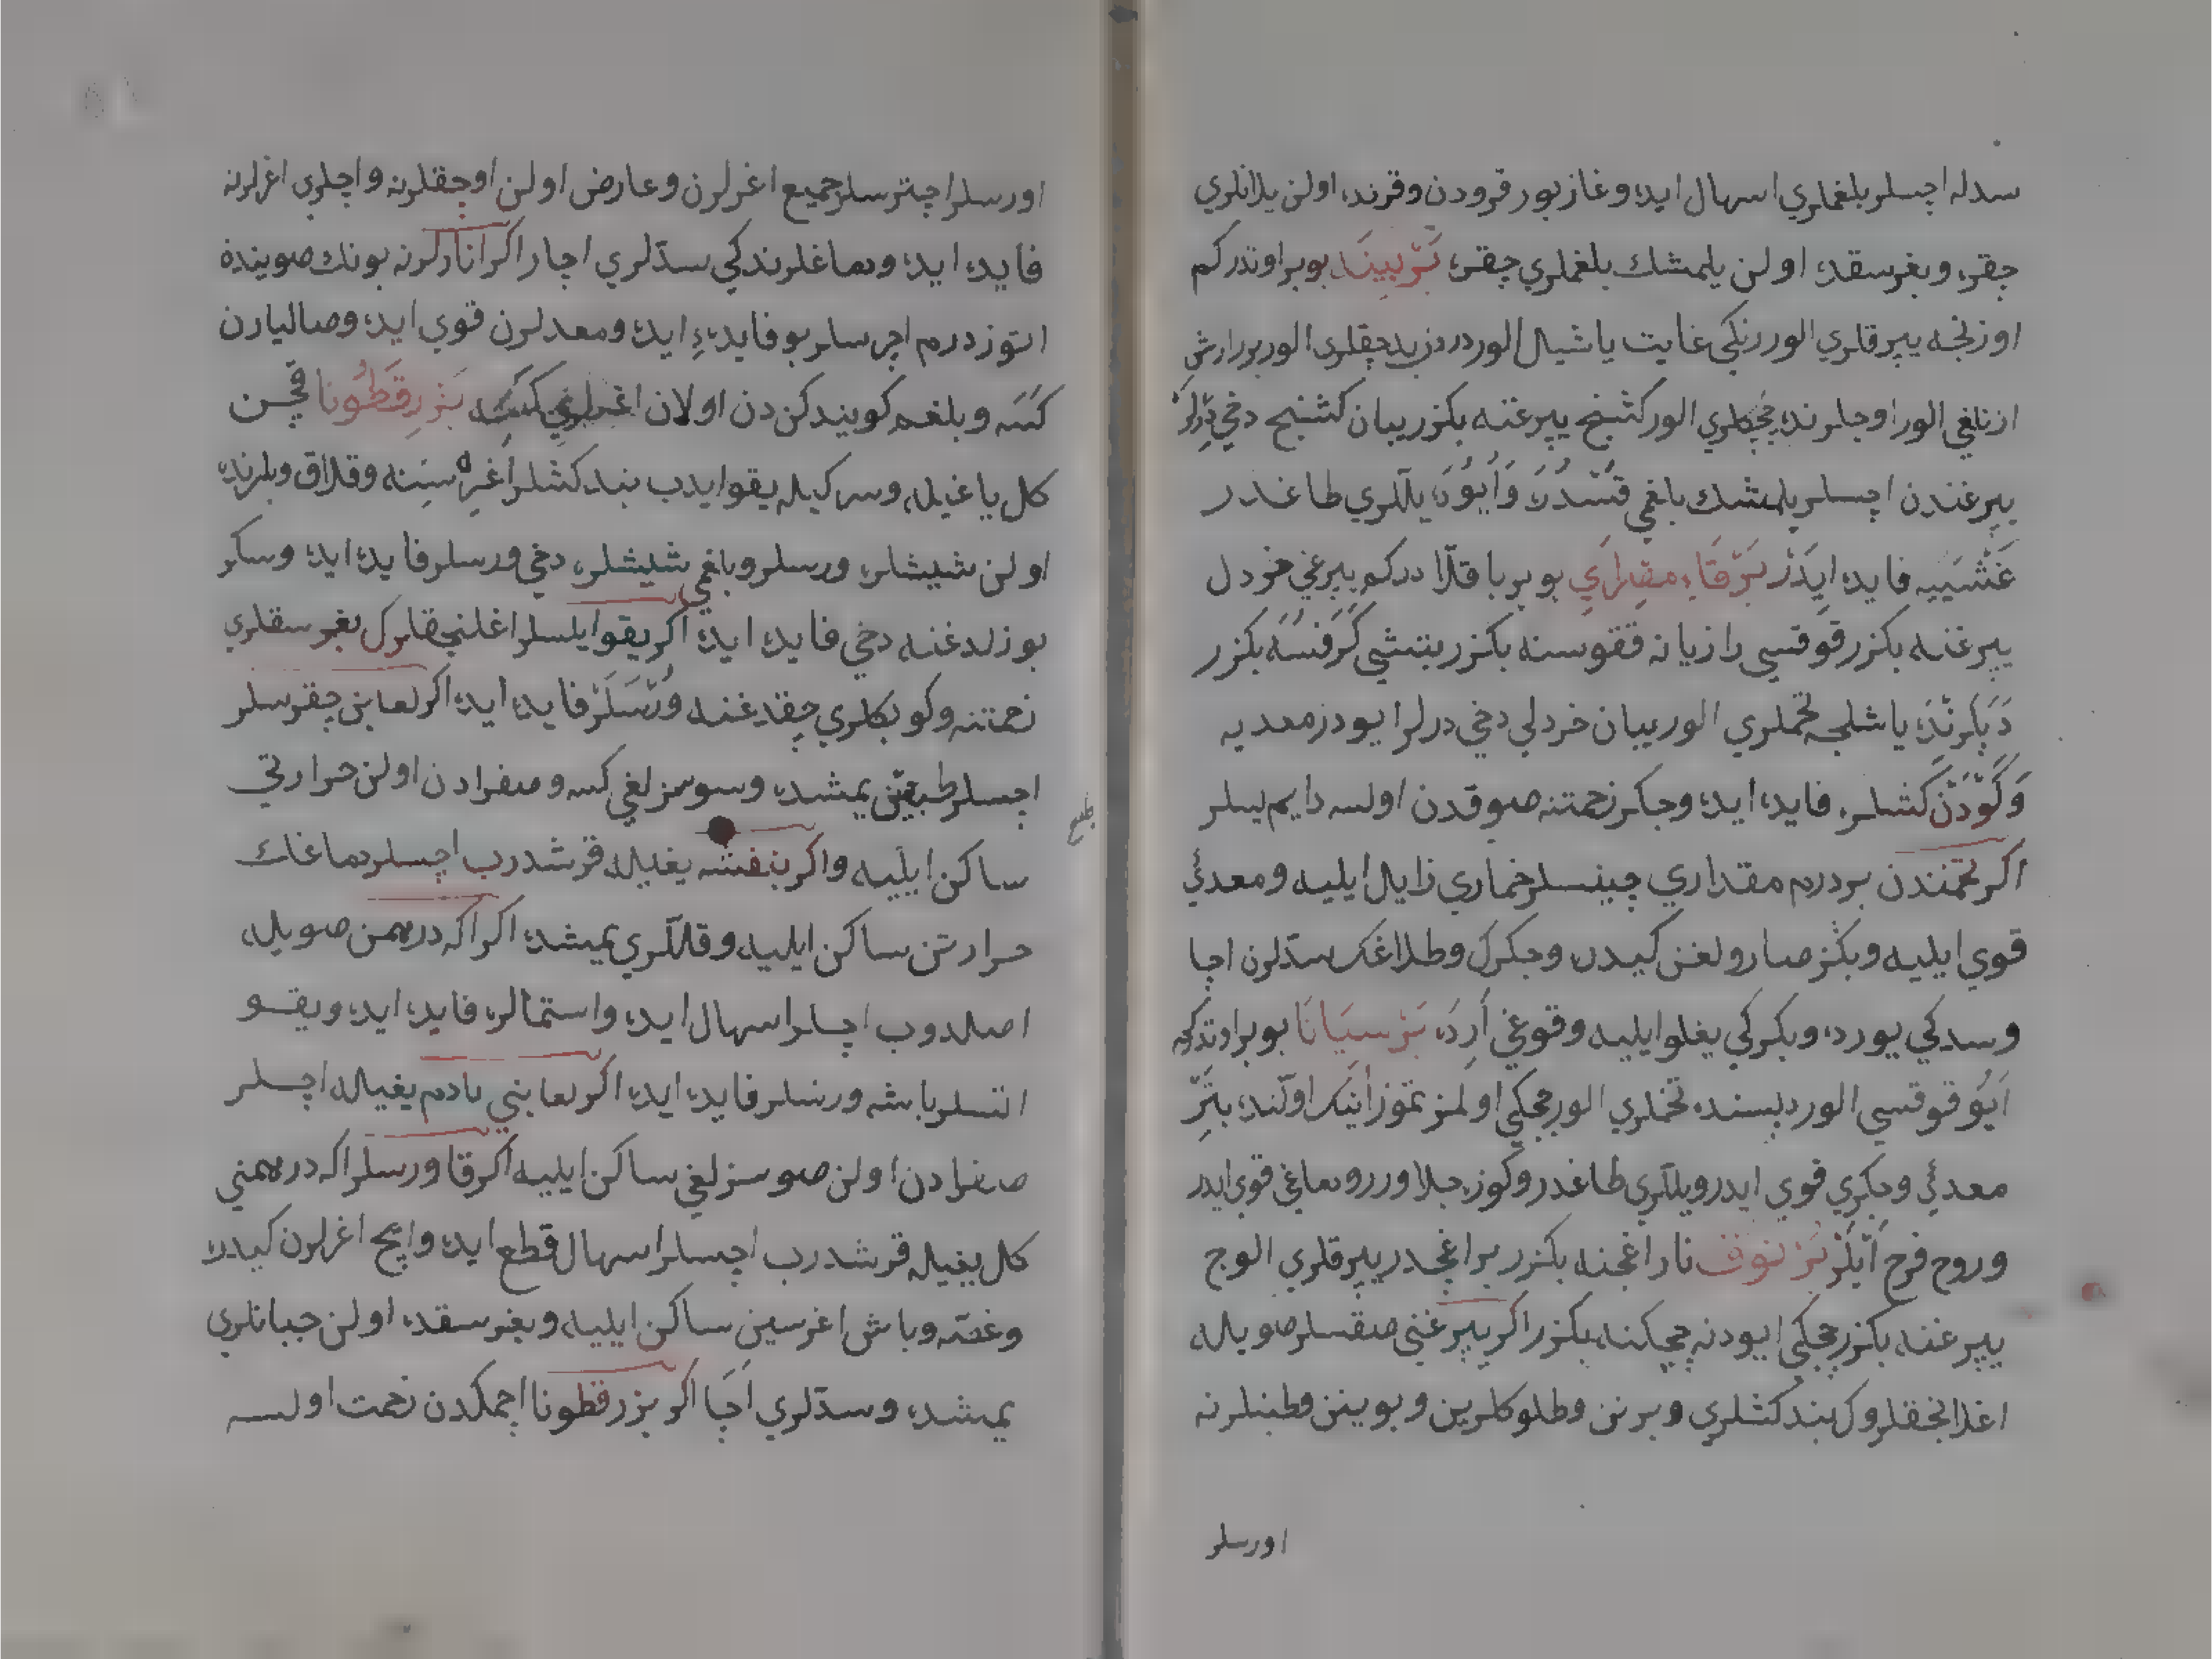 سدله اچسلر بلغملري اسهال ايده وغازيور قرودن وقرنده اولن يلانلري
چقره وبغرسقده اولن يلمشك بلغملري چقره بربينه بوبراوتدركم
اوزنجه يپرقلري الور رنكي غايت ياشيل الور
ازنلغي الور اوجلرنده چچكلري الور كشنج يپرغنه بكزر يبان كشنج دخي ديرلر
يپرغندن اچسلر يلمشك بلغمي قسدره وايوه يللري طاغدر
غشييه فايده ايدر برقاء مقداري بوبر باقلا دركم يپرغي خردل
يپرغنه بكزر قوقسي رازيانه قوقوسنه بكزر بتشي كرفسه بكزر
دپكرنده ياشلجه تخملري الور يبان خردلي دخي درلر ايودر معديه
وكودن كشلره فايده ايده وجكر زحمتنه صوقدن اولسه دايم يسلر
اكر تخمندن بردرم مقداري چينسلر خماري زايل ايليه ومعدئي
قوي ايليه وبكز صارولغن كيدره وجكرك وطلاغك سدلرن اچا
وسدكي يورده وبكركي يغلو ايليه وقوغي ارده برسيانا بوبراوتدركم
ايو قوقسي الور دبسنده تخملري الور چچكي اولمز تموز اينك اولنده بتر
معدئي وجكري قوي ايدر ويللري طاغدر وكوزه جلا ورر ودماغي قوي ايدر
وروح فرح ايلر بزنوف نار اغجنه بكزر بر اغجدر يپرقلري الوج
يپرغنه بكزر چچكي ايودنه چچكنه بكزر اكر يپرغني صقسلر صويله
اغلانجقلروك بند كشلري وبرنن وطلوكلرين وبوينن وطبنلرنه
اورسلر
اورسلر اچترسلر جميع اغرلرن وعارض اولن اوجقلرنه واچلري اغرلرنه
فايده ايده ودماغلرندكي سدلري اچار اكر انارلرنه بونك صوينده
اتوز درم اچرسلر بو فايدءِ ايده ومعدلرن قوي ايده وصاليارن
كسه وبلغم كويندكن دن اولان اغرلري كسه بزرقطونا قچن
كل ياغيله وسركيله يقو ايدب بند كشلر اغرسنه وقلاق
اولن شيشلره ورسلر وبلغمي شيشلره دخي ورسلر فايده ايده وسكر
بوزلدغنه دخي فايده ايده اكر يقو ايلسلر اغلنجقلرك بغرسقلري
زحمتنه وكوبكلري چقدغنه ورسلر فايده ايده اكر لعابن چقرسلر
اچسلر طبيعتن يمشده وسوسزلغي كسه وصفرادن اولن حرارتي
ساكن ايليه واكر بنفشه يغيله قرشدرب اچسلر دماغك
حرارتن ساكن ايليه وقللري يمشده اكر اكه درهمن صويله
اصلدوب اچسلر اسهال ايده واستمالره فايده ايده ويقو
اتسلر باشه ورسلر فايده ايده اكر لعابني بادم يغيله اچسلر
صفرادن اولن صوسزلغي ساكن ايليه اكر قاورسلر اكه درهمني
كل يغيله قرشدرب اچسلر اسهال قطع ايده وايچ اغرلرن كيدره
وغصه وباش اغرسين ساكن ايليه وبغرسقده اولن جبانلري
يمشده وسدلري اچا اكر بزرقطونا اچمكدن زحمت اولسه